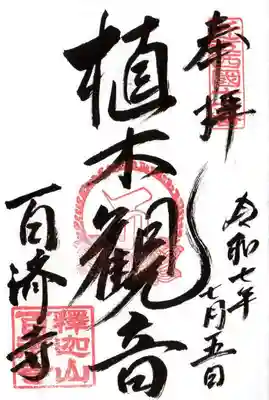 奉拝
令和七年
七月五日
植木観音
百済寺
釋迦山
百済寺